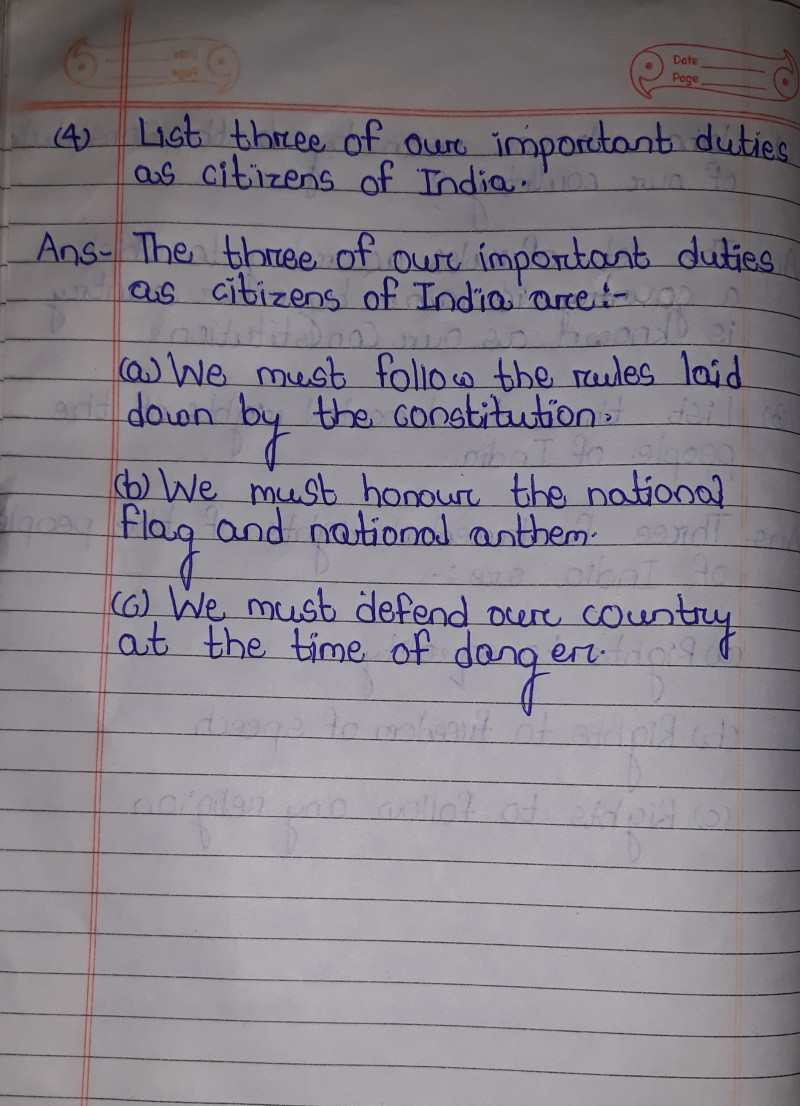 Date
Page
(4) List three of our important duties
as citizens of India.
Ans- The three of our important duties
as citizens of India are:-
(a) We must follow the rules laid
down by the constitution.
(b) We must honour the national
flag and national anthem.
(c) We must defend our country
at the time of danger.